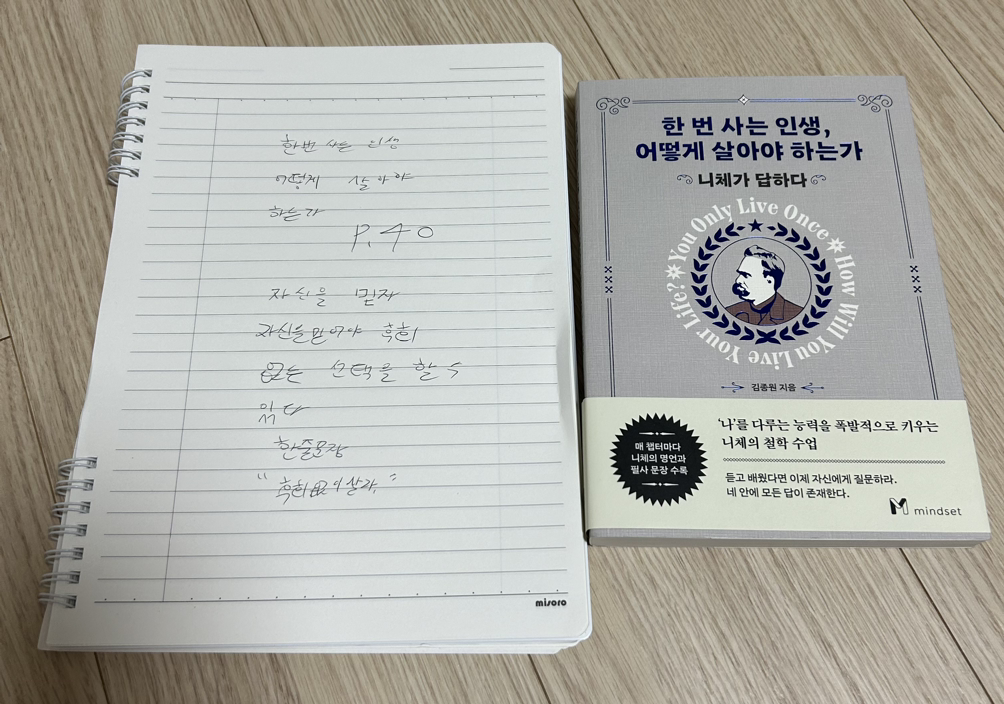 한번 사는 인생
어떻게 살아야
하는가
P.40
자신을 믿자
자신을 믿어야 후회
없는 선택을 할 수
있다
한줄문장
"후회없이살자."
misoro
한 번 사는 인생,
어떻게 살아야 하는가
니체가 답하다
You Only Live Once
How Will You Live Your Life?
김종원 지음
'나'를 다루는 능력을 폭발적으로 키우는
니체의 철학 수업
매 챕터마다
니체의 명언과
필사 문장 수록
듣고 배웠다면 이제 자신에게 질문하라.
네 안에 모든 답이 존재한다.
mindset